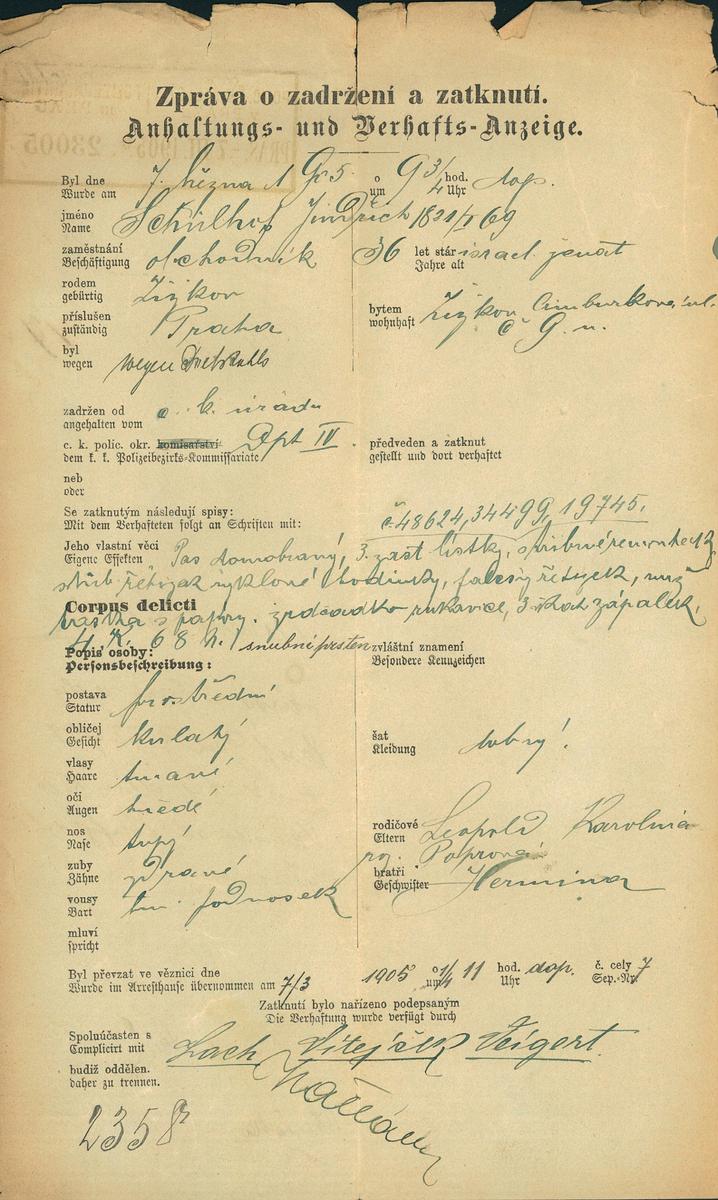 Zpráva o zadržení a zatknutí.
Anhaltungs- und Verhafts-Anzeige.
23005
Byl dne 7. března 1905 o 9 3/4 hod. dop.
Wurde am um Uhr
jméno Schulhof Jindřich
Name
zaměstnání obchodník 36 let stár israel. ženat
Beschäftigung Jahre alt
rodem Žižkov
gebürtig
příslušen Praha bytem Žižkov, Cimburkova ul.
zuständig wohnhaft č 9. n.
byl wegen Diebstahls
wegen
zadržen od c. k. úřadu
angehalten vom
c. k. polic. okr. komisařství Dpt IV. předveden a zatknut
dem k. k. Polizeibezirks-Kommissariate gestellt und dort verhaftet
neb
oder
Se zatknutým následují spisy: č. 48624, 34499, 19745.
Mit dem Verhafteten folgt an Schriften mit:
Jeho vlastní věci Pas domobraný, 3. zast. lístky, stříbrné remontoirky
Eigene Effekten
stříb řetízek niklové hodinky, falešný řetízek, nůž
Corpus delicti
taška s papíry. zrcadlo rukavice, 3 škat zápalek,
4 K. 68 h. 1 snubní prsten
Popis osoby: zvláštní znamení
Personsbeschreibung: Besondere Kennzeichen
postava prostřední
Statur
obličej kulatý šat dobrý!
Gesicht Kleidung
vlasy tmavé
Haare
oči hnědé
Augen
nos tupý rodičové Leopold Karolina
Nase Eltern roz. Poprová
zuby zdravé bratři Hermina
Zähne Geschwister
vousy tm. podnosek
Bart
mluví
spricht
Byl převzat ve věznici dne 7/3 1905 o 1/4 11 hod. dop. č. cely 7
Wurde im Arresthause übernommen am um Uhr Sep.-Nr.
Zatknutí bylo nařízeno podepsaným
Die Verhaftung wurde verfügt durch
Spoluúčasten s Lach Vítejček Veigert.
Complicirt mit
budiž oddělen.
daher zu trennen.
2358